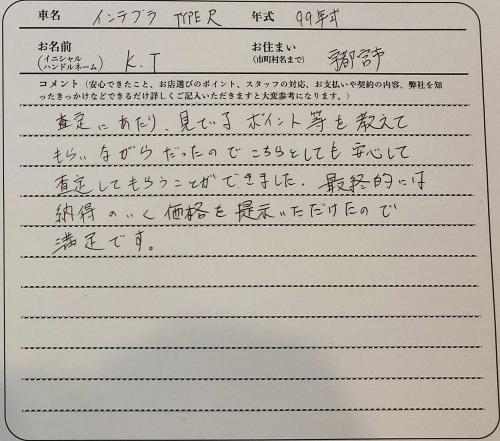 車名 インテグラ TYPE R 年式 99年式
お名前 (イニシャル ハンドルネーム) K.T お住まい (市町村名まで) 宇都宮市
コメント (安心できたこと、お店選びのポイント、スタッフの対応、お支払いや契約の内容、弊社を知
ったきっかけなどできるだけ詳しくご記入いただきますと大変参考になります。)
査定にあたり、見ているポイント等を教えて
もらいながらだったのでこちらとしても安心して
査定してもらうことができました。最終的には
納得のいく価格を提示いただけたので
満足です。